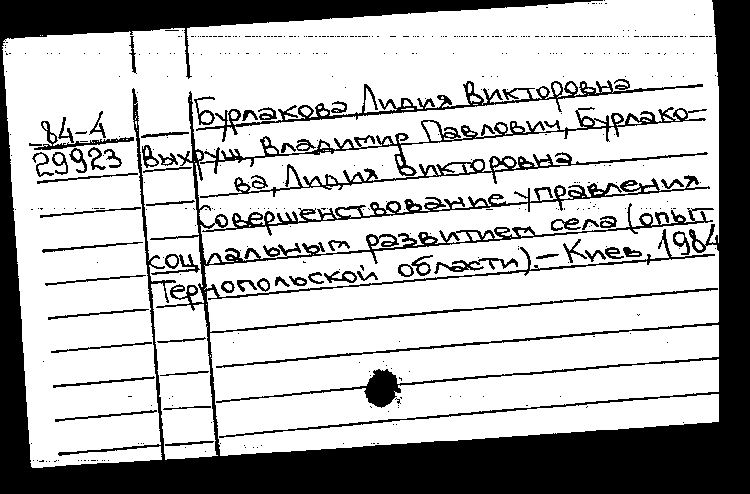 Бурлакова, Лидия Викторовна
84-4
29923 Выхрущ, Владимир Павлович, Бурлако-
ва, Лидия Викторовна.
Совершенствование управления
социальным развитием села (опыт
Тернопольской области).— Киев, 1984